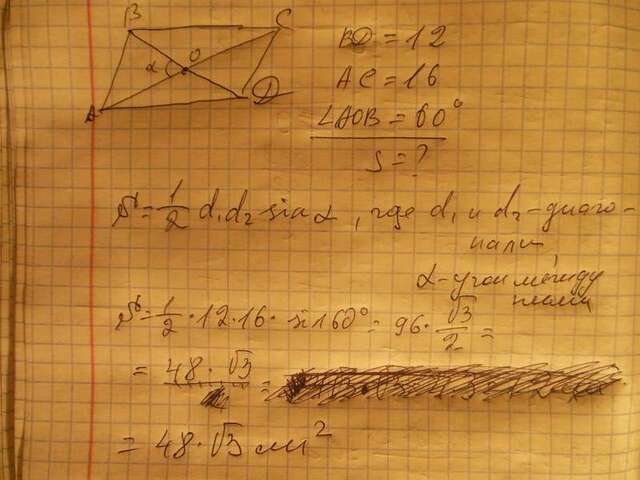 B
C
O
α
A
D
BD = 12
AC = 16
∠AOB = 60°
S = ?
S = 1/2 d₁d₂ sin α, где d₁ и d₂ - диаго-
нали,
α - угол между
ними
S = 1/2 · 12 · 16 · sin 60° = 96 · √3/2 =
= 48 · √3 =
= 48 · √3 см²